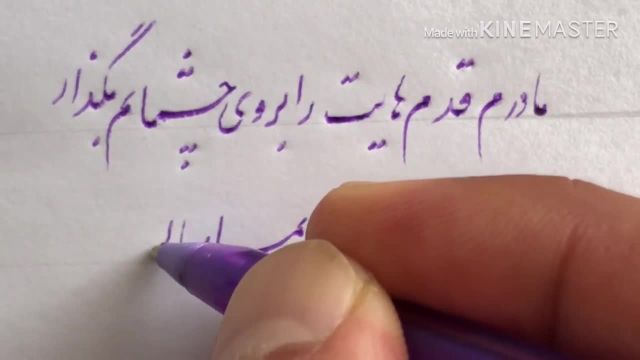 Made with KINEMASTER
مادرم قدم هایت را بروی چشمایم بگذار